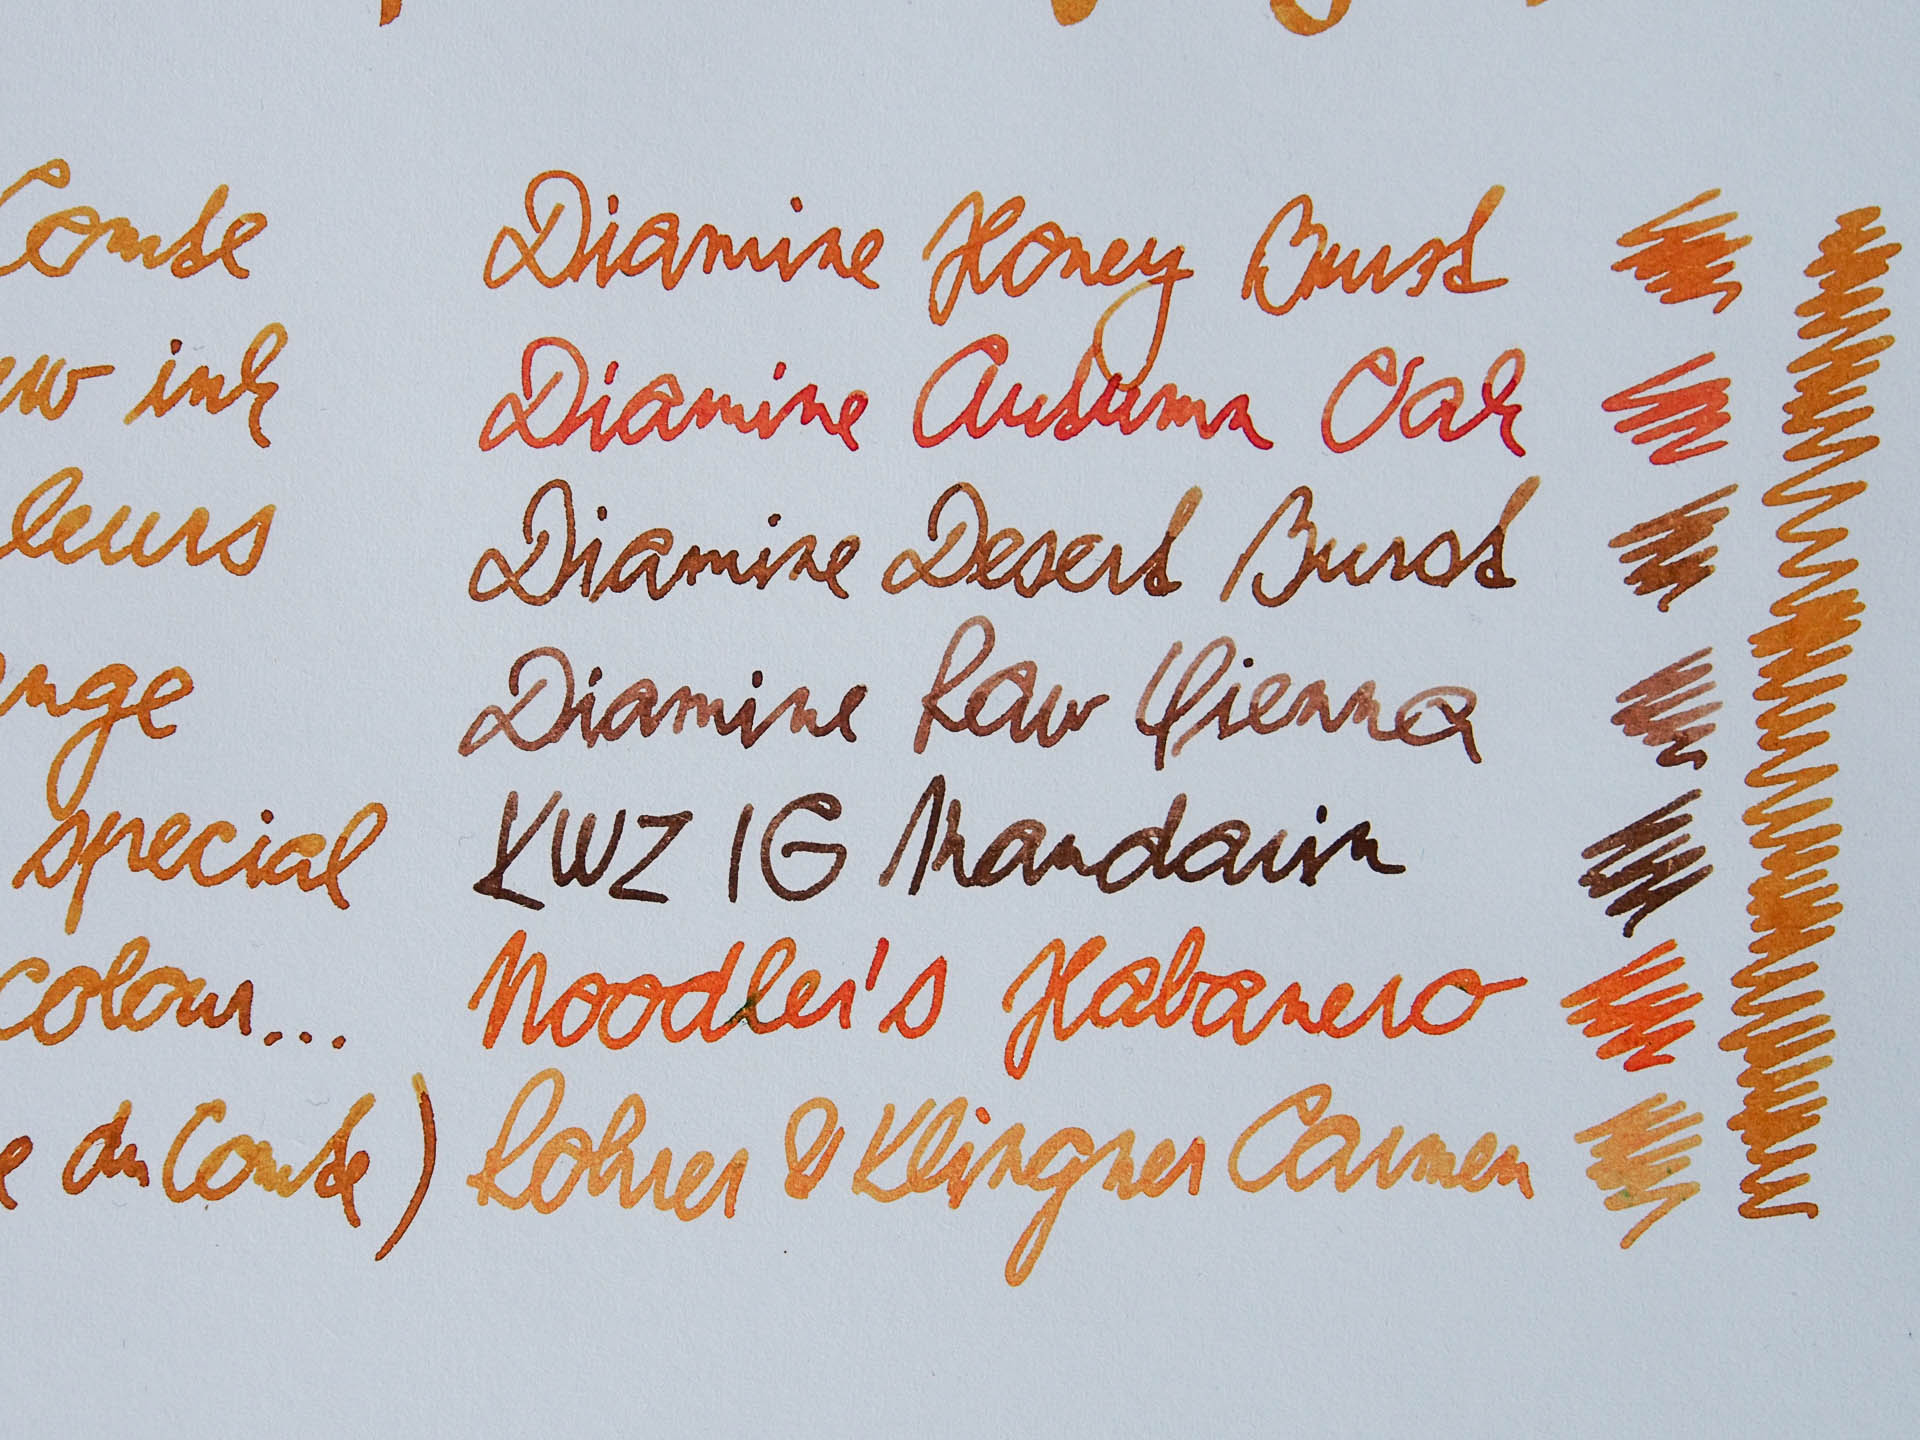 Combe Diamine Honey Burst
ew ink Diamine Autumn Oak
leurs Diamine Desert Burst
nge Diamine Raw Sienna
special KWZ IG Mandarin
colour... Noodler's Habanero
e du Combe) Rohrer & Klingner Carmen